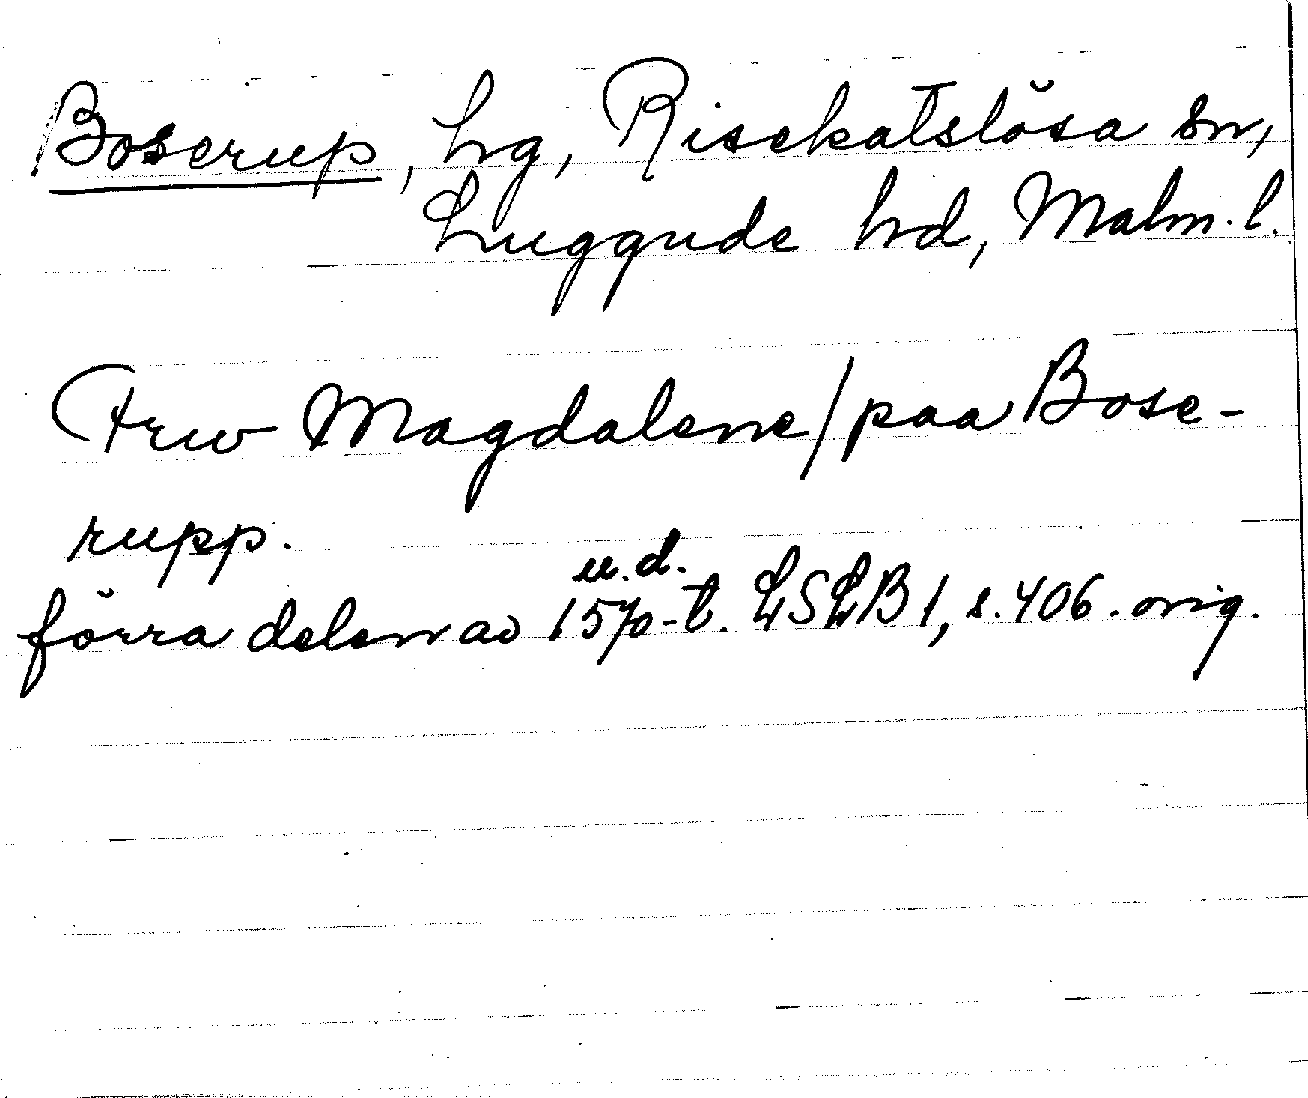 Boserup, hg, Risekatslösa sn,
Luggude hd, Malm. l.
Frw Magdalene / paa Bose-
rupp.
u.d.
förra delen av 1570-t. LSLB 1, s. 406. orig.